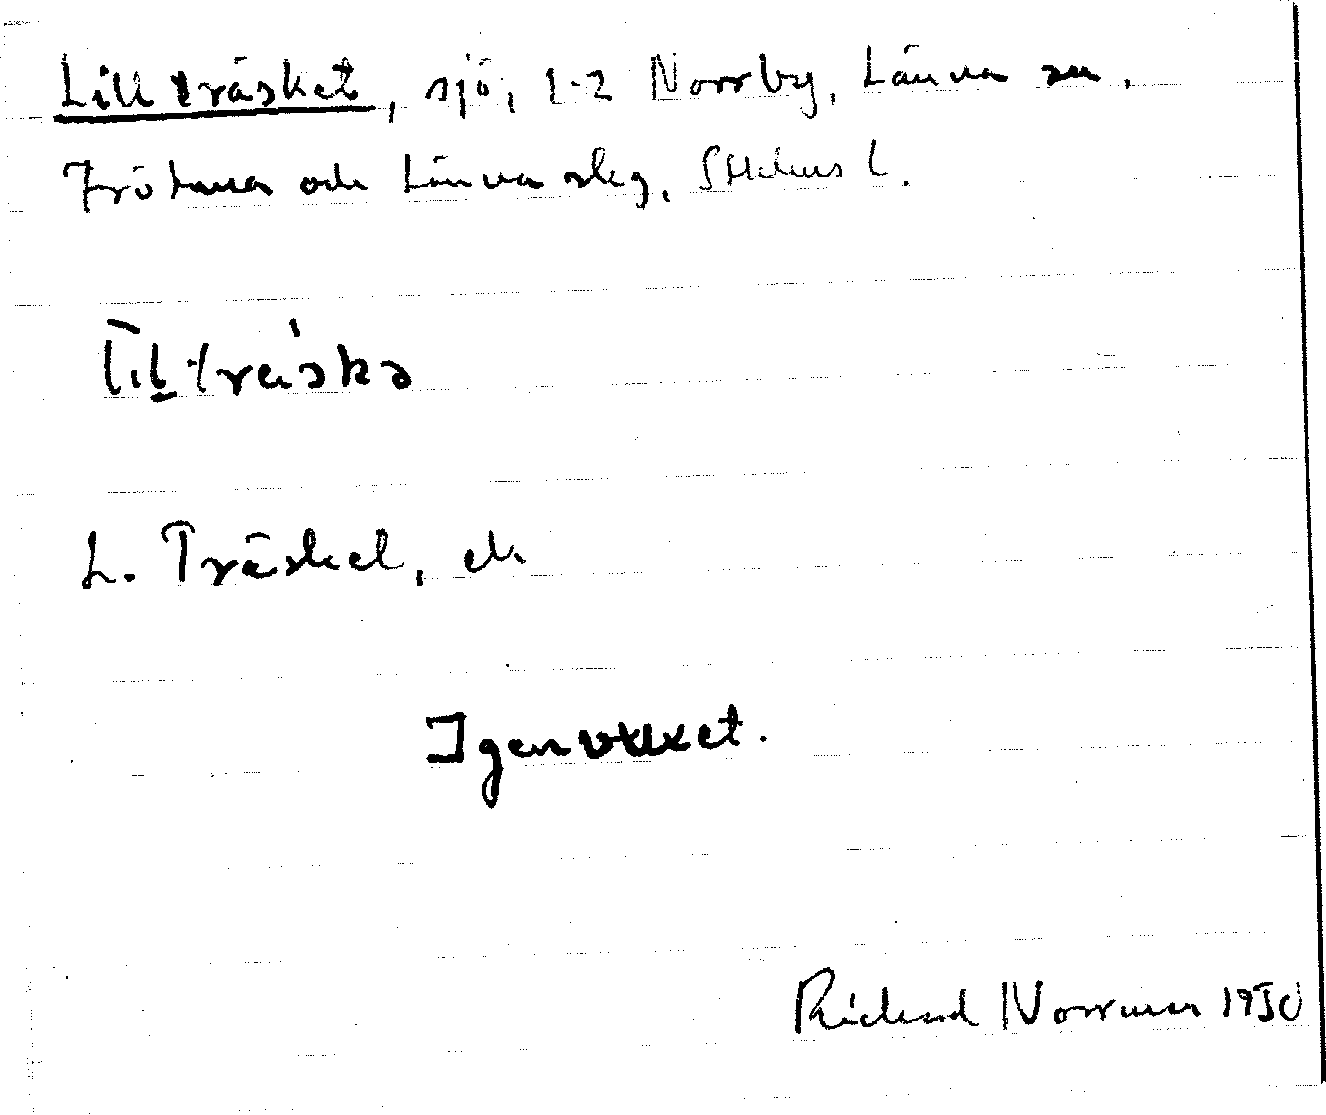 Lillträsket, sjö, 1-2 Norrby, Länna sn.
Frötuna och Länna slg, Sthlms l.
L. Träsket, ek
Igenvuxet.
Rickard Norrman 1930